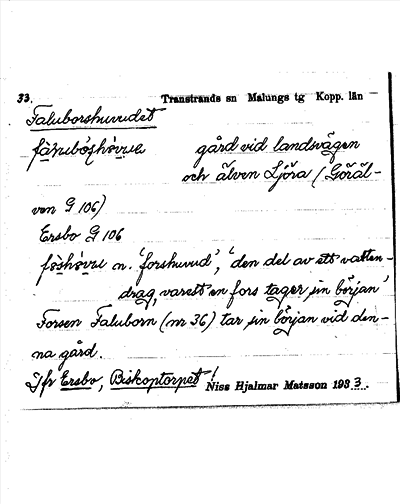 33. Transtrands sn Malungs tg Kopp. län
Faluborshuvudet
gård vid landsvägen
och älven Ljöra (Göräl-
ven G 106)
Ersbo G 106
n. 'forshuvud', 'den del av ett vatten-
drag, varest en fors tager sin början'
Forsen Faluborn (nr 36) tar sin början vid den-
na gård.
Jfr Ersbo, Biskoptorpet!
Niss Hjalmar Matsson 1933.